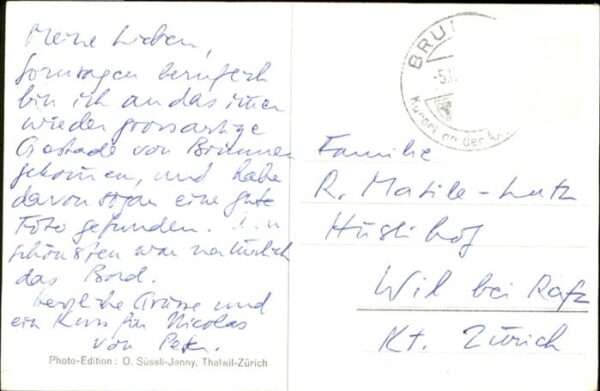 Meine Lieben,
sozusagen beruflich
bin ich an das immer
wieder grossartige
Gestade von Brunnen
gekommen, und habe
davon sogar eine gute
Foto gefunden. Am
schönsten war natürlich
das Bord.
Herzliche Grüsse und
ein Kuss für Nicolas
von Peter.
Photo-Edition: O. Süssli-Jenny, Thalwil-Zürich
BRU
-5.
Kurort an der
Familie
R. Matile-Lutz
Hüslihof
Wil bei Rafz
Kt. Zürich